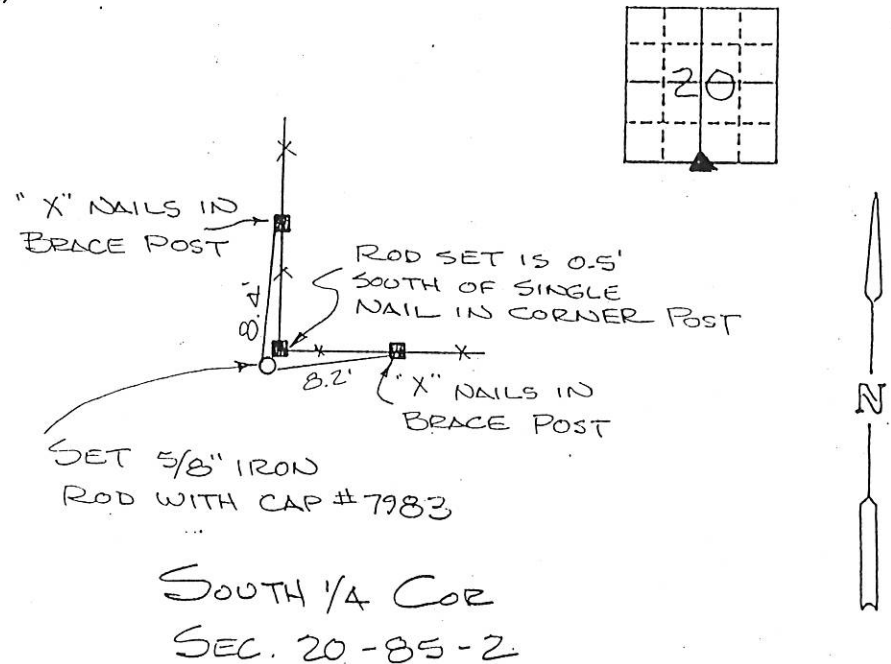 20
"X" NAILS IN
BRACE POST
ROD SET IS 0.5'
SOUTH OF SINGLE
NAIL IN CORNER POST
8.4'
8.2'
"X" NAILS IN
BRACE POST
N
SET 5/8" IRON
ROD WITH CAP #7983
SOUTH 1/4 COR
SEC. 20-85-2